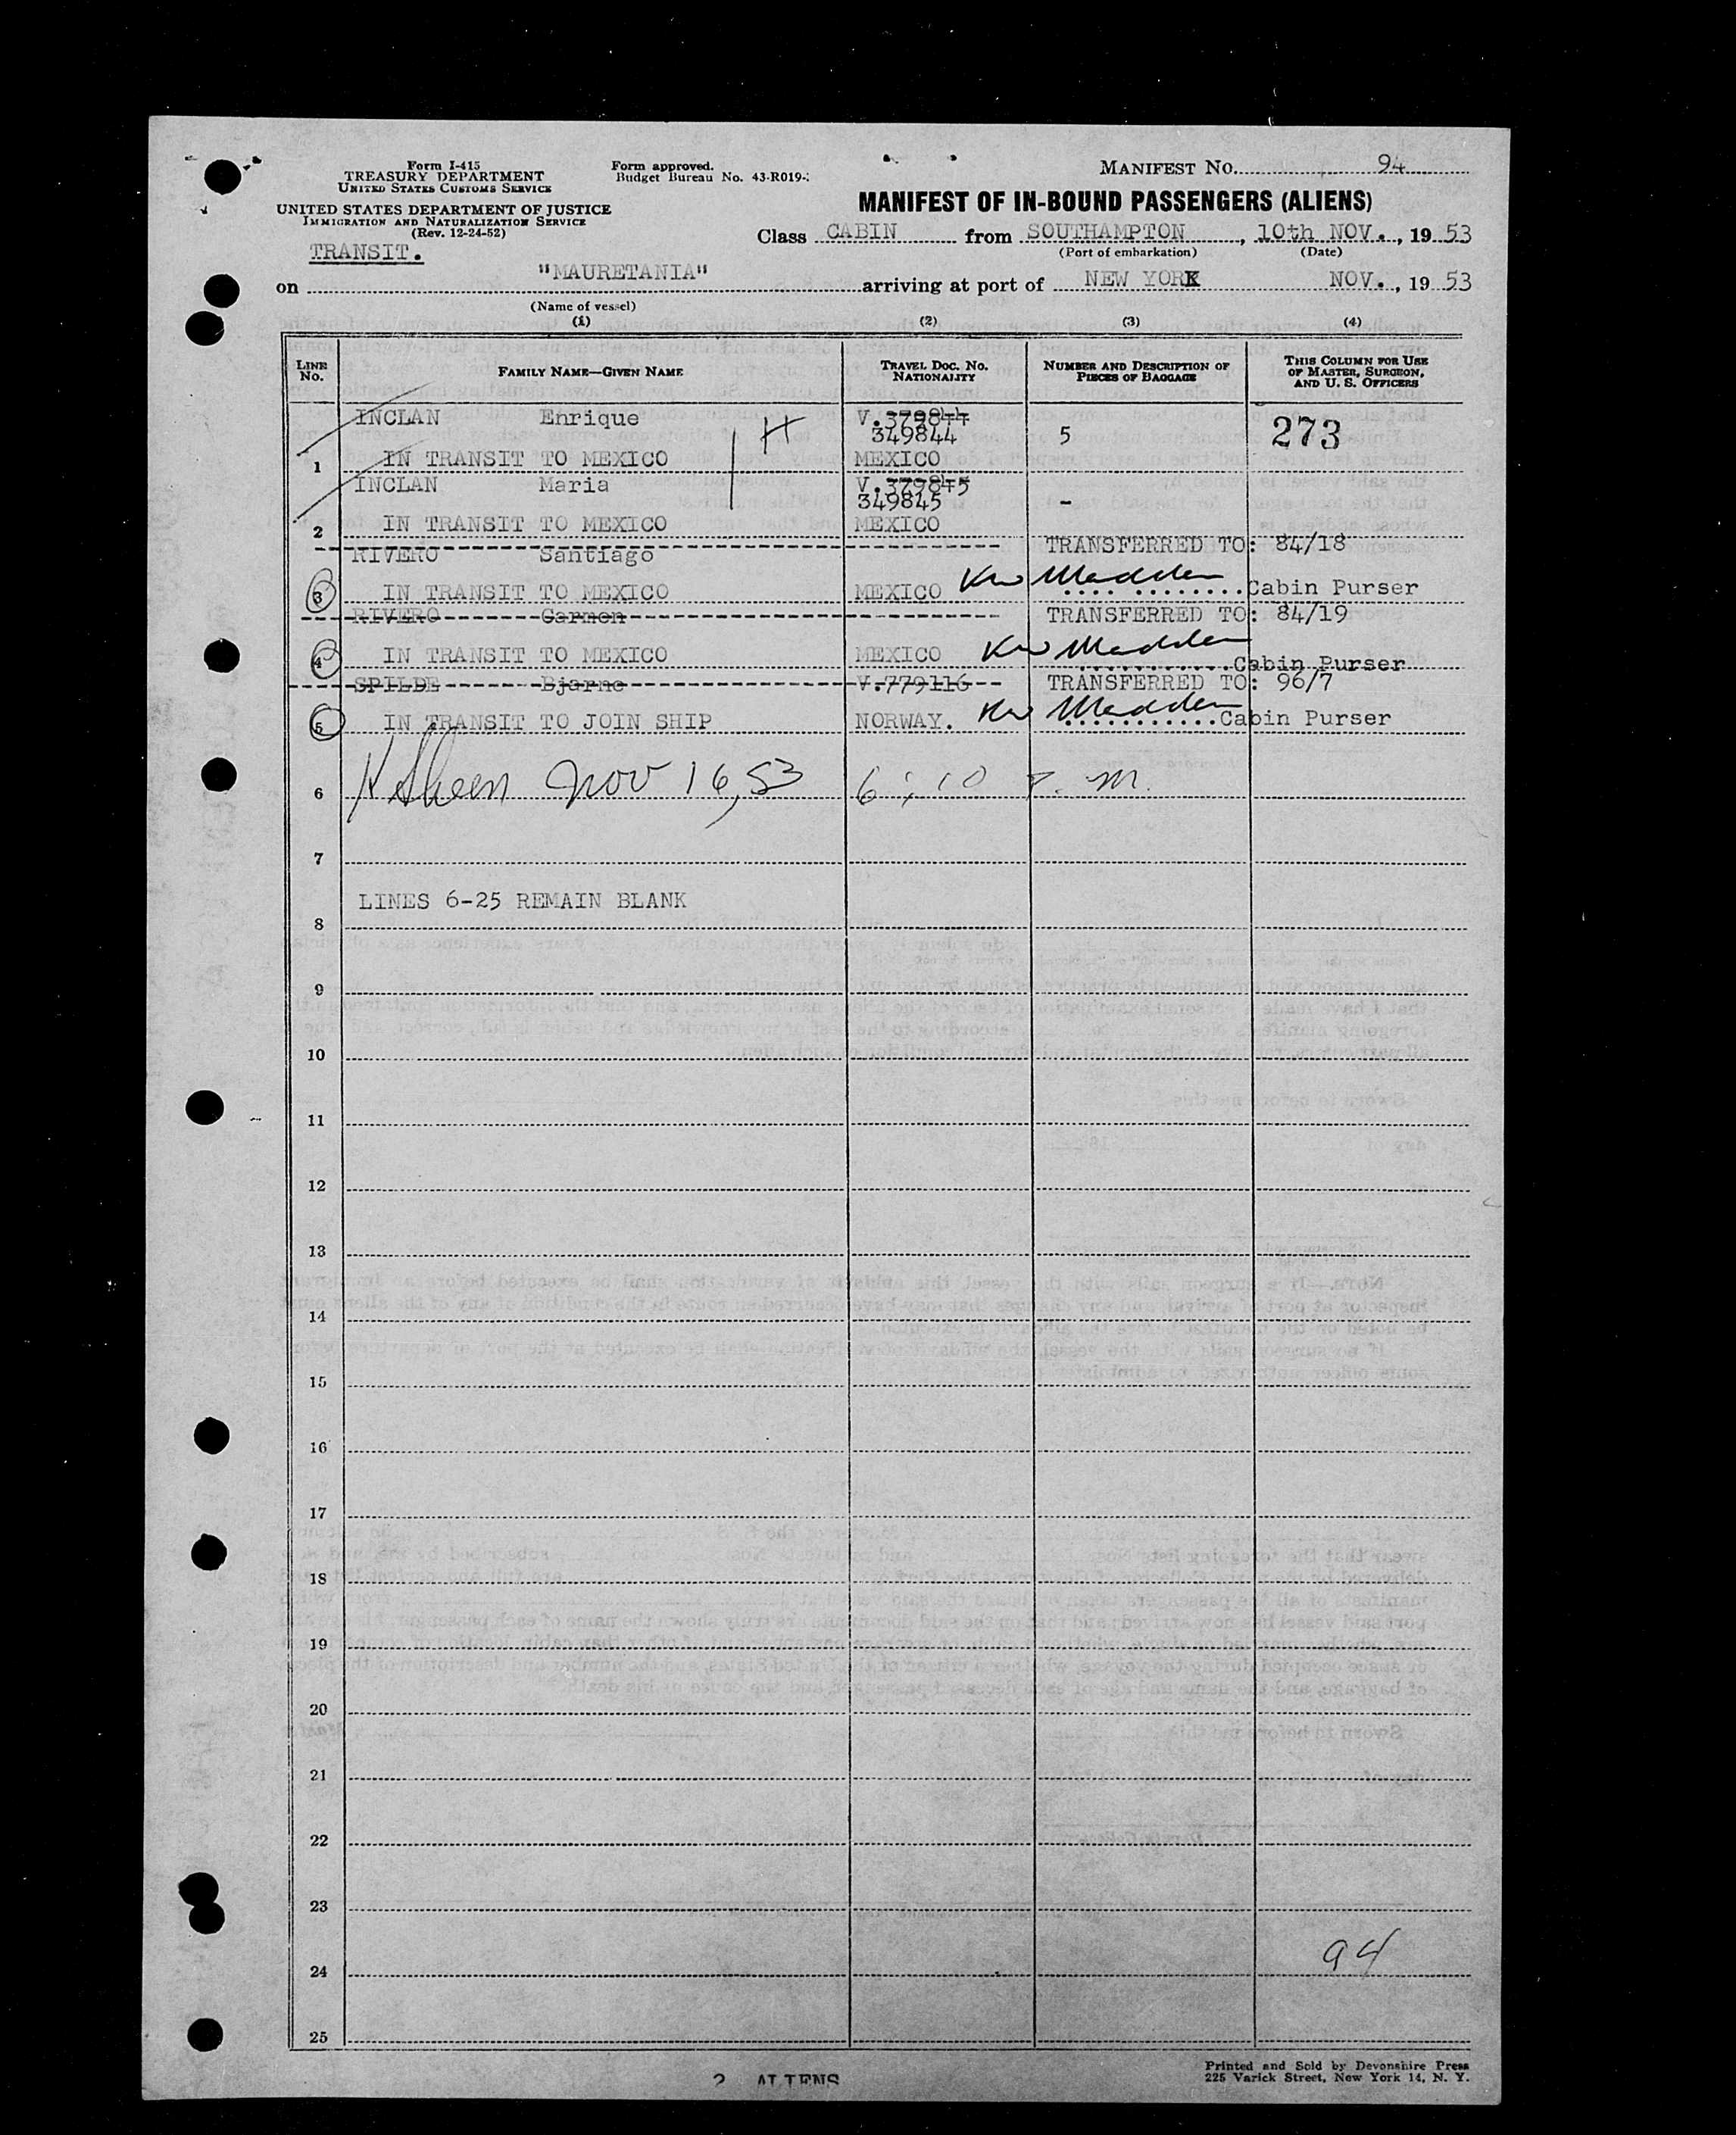 Form I-415
TREASURY DEPARTMENT
UNITED STATES CUSTOMS SERVICE
UNITED STATES DEPARTMENT OF JUSTICE
IMMIGRATION AND NATURALIZATION SERVICE
(Rev. 12-24-52)
TRANSIT.
Form approved.
Budget Bureau No. 43-R019-
MANIFEST NO. 94
MANIFEST OF IN-BOUND PASSENGERS (ALIENS)
Class CABIN from SOUTHAMPTON, 10th NOV., 1953
(Port of embarkation) (Date)
on "MAURETANIA" arriving at port of NEW YORK NOV., 1953
(Name of vessel)
(1) (2) (3) (4)
LINE NO. FAMILY NAME—GIVEN NAME TRAVEL DOC. NO. NATIONALITY NUMBER AND DESCRIPTION OF PIECES OF BAGGAGE THIS COLUMN FOR USE OF MASTER, SURGEON, AND U. S. OFFICERS
INCLAN Enrique H V.379844
349844 5 273
1 IN TRANSIT TO MEXICO MEXICO
INCLAN Maria V.379845
349845 -
2 IN TRANSIT TO MEXICO MEXICO
RIVERO Santiago TRANSFERRED TO: 84/18
3 IN TRANSIT TO MEXICO MEXICO Madden Cabin Purser
RIVERO Carmen TRANSFERRED TO: 84/19
4 IN TRANSIT TO MEXICO MEXICO Madden Cabin Purser
SPILDE Bjarne V.779116 TRANSFERRED TO: 96/7
5 IN TRANSIT TO JOIN SHIP NORWAY. Madden Cabin Purser
6 Nov 16, 53 6:10 P. M.
7
LINES 6-25 REMAIN BLANK
8
9
10
11
12
13
14
15
16
17
18
19
20
21
22
23
94
24
25
2 ALIENS
Printed and Sold by Devonshire Press
225 Varick Street, New York 14, N. Y.